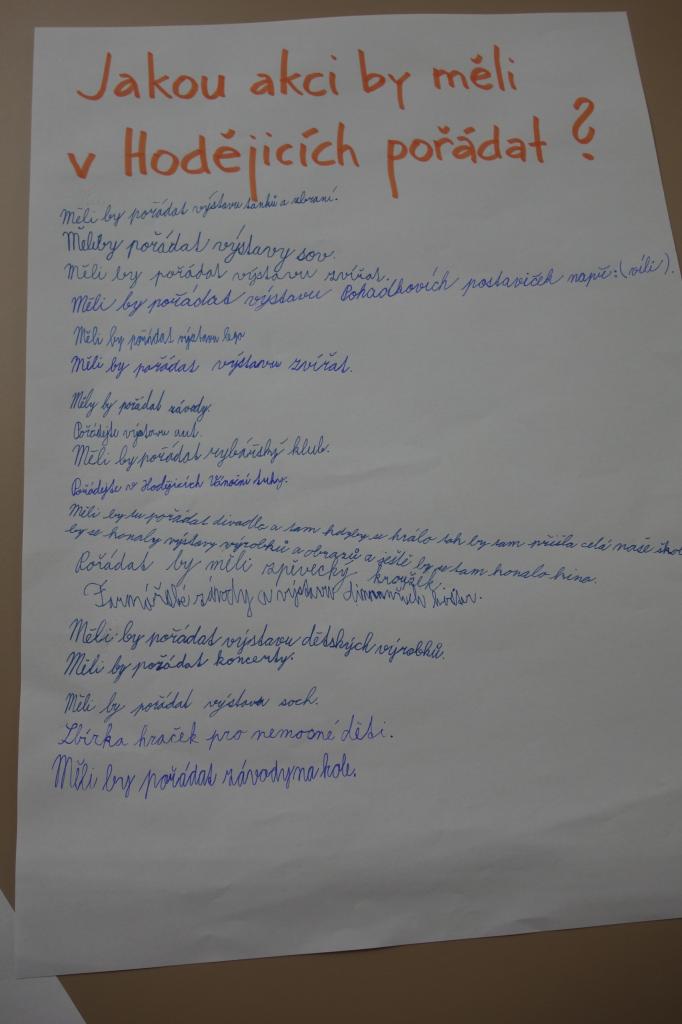 Jakou akci by měli
v Hodějicích pořádat?
Měli by pořádat výstavu tanků a zbraní.
Měli by pořádat výstavy sov.
Měli by pořádat výstavu zvířat.
Měli by pořádat výstavu Pohadkovích postaviček např:(víli).
Měli by pořádat výstavu lego
Měli by pořádat výstavu zvířat.
Měly by pořádat závody.
Pořádejte výstavu aut.
Měli by pořádat rybářský klub.
Pořádejte v Hodějicích Vánoční trhy.
Měli by tu pořádat divadla a tam kdyby se hrálo tak by tam přišla celá naše škol
by se konaly výstavy výrobků a obrazů a ještě by se tam konalo kina.
Pořádat by měli zpěvecký kroužek.
Farmářské závody a výstavu
Měli by pořádat výstavu dětských výrobků.
Měli by pořádat koncerty.
Měli by pořádat výstavu soch.
Sbírka hraček pro nemocné děti.
Měli by pořádat závody na kole.